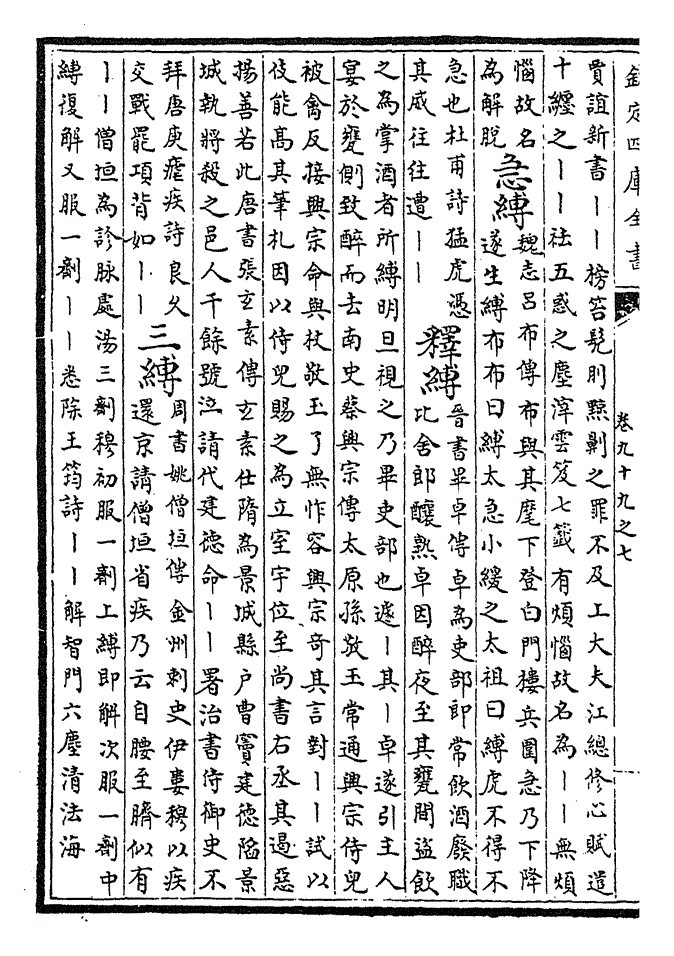 欽定四庫全書
卷九十九之七
賈誼新書丨丨榜笞髡刖黥劓之罪不及士大夫江總修心賦遣
十纏之丨丨祛五惑之塵滓雲笈七籤有煩惱故名為丨丨無煩
惱故名
為解脫
急縛
魏志呂布傳布與其麾下登白門樓兵圍急乃下降
遂生縛布布曰縛太急小緩之太祖曰縛虎不得不
急也杜甫詩猛虎憑
其威往往遭丨丨
釋縛
晉書畢卓傳卓為吏部郎常飲酒廢職
比舍郎釀熟卓因醉夜至其甕間盜飲
之為掌酒者所縛明旦視之乃畢吏部也遽丨其丨卓遂引主人
宴於甕側致醉而去南史蔡興宗傳太原孫敬玉常通興宗侍兒
被禽反接興宗命與杖敬玉了無怍容興宗奇其言對丨丨試以
伎能高其筆札因以侍兒賜之為立室宇位至尚書右丞其遏惡
揚善若此唐書張玄素傳玄素仕隋為景城縣戶曹竇建德陷景
城執將殺之邑人千餘號泣請代建德命丨丨署治書侍御史不
拜唐庚瘧疾詩良久
交戰罷項背如丨丨
三縛
周書姚僧垣傳金州刺史伊婁穆以疾
還京請僧垣省疾乃云自腰至臍似有
丨丨僧垣為診脉處湯三劑穆初服一劑上縛即解次服一劑中
縛復解又服一劑丨丨悉除王筠詩丨丨解智門六塵清法海